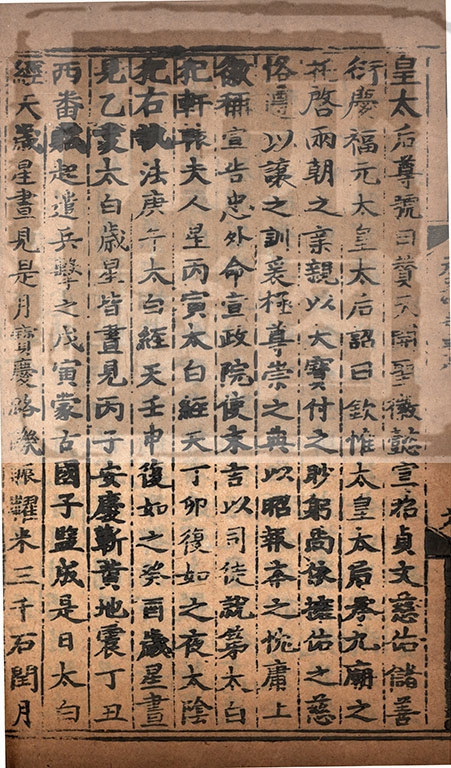 皇太后尊號曰贊天開聖徽懿宣昭貞文慈佑儲善
衍慶福元太皇太后詔曰欽惟太皇太后承九廟之
托啓兩朝之業親以大寶付之眇躬尚依擁佑之慈
恪遵以讓之訓爰極尊崇之典以昭報本之忱庸上
徽稱宣告忠外命宣政院使末吉以司徒就第太白
犯軒轅夫人星丙寅太白經天丁卯復如之夜太陰
犯右執法庚午太白經天壬申復如之癸酉歲星晝
見乙亥太白歲星皆晝見丙子安慶蘄黃地震丁丑
西番起遣兵擊之戊寅蒙古國子監成是日太白
經天歲星晝見是月寶慶路饑賑糶米三千石閏月